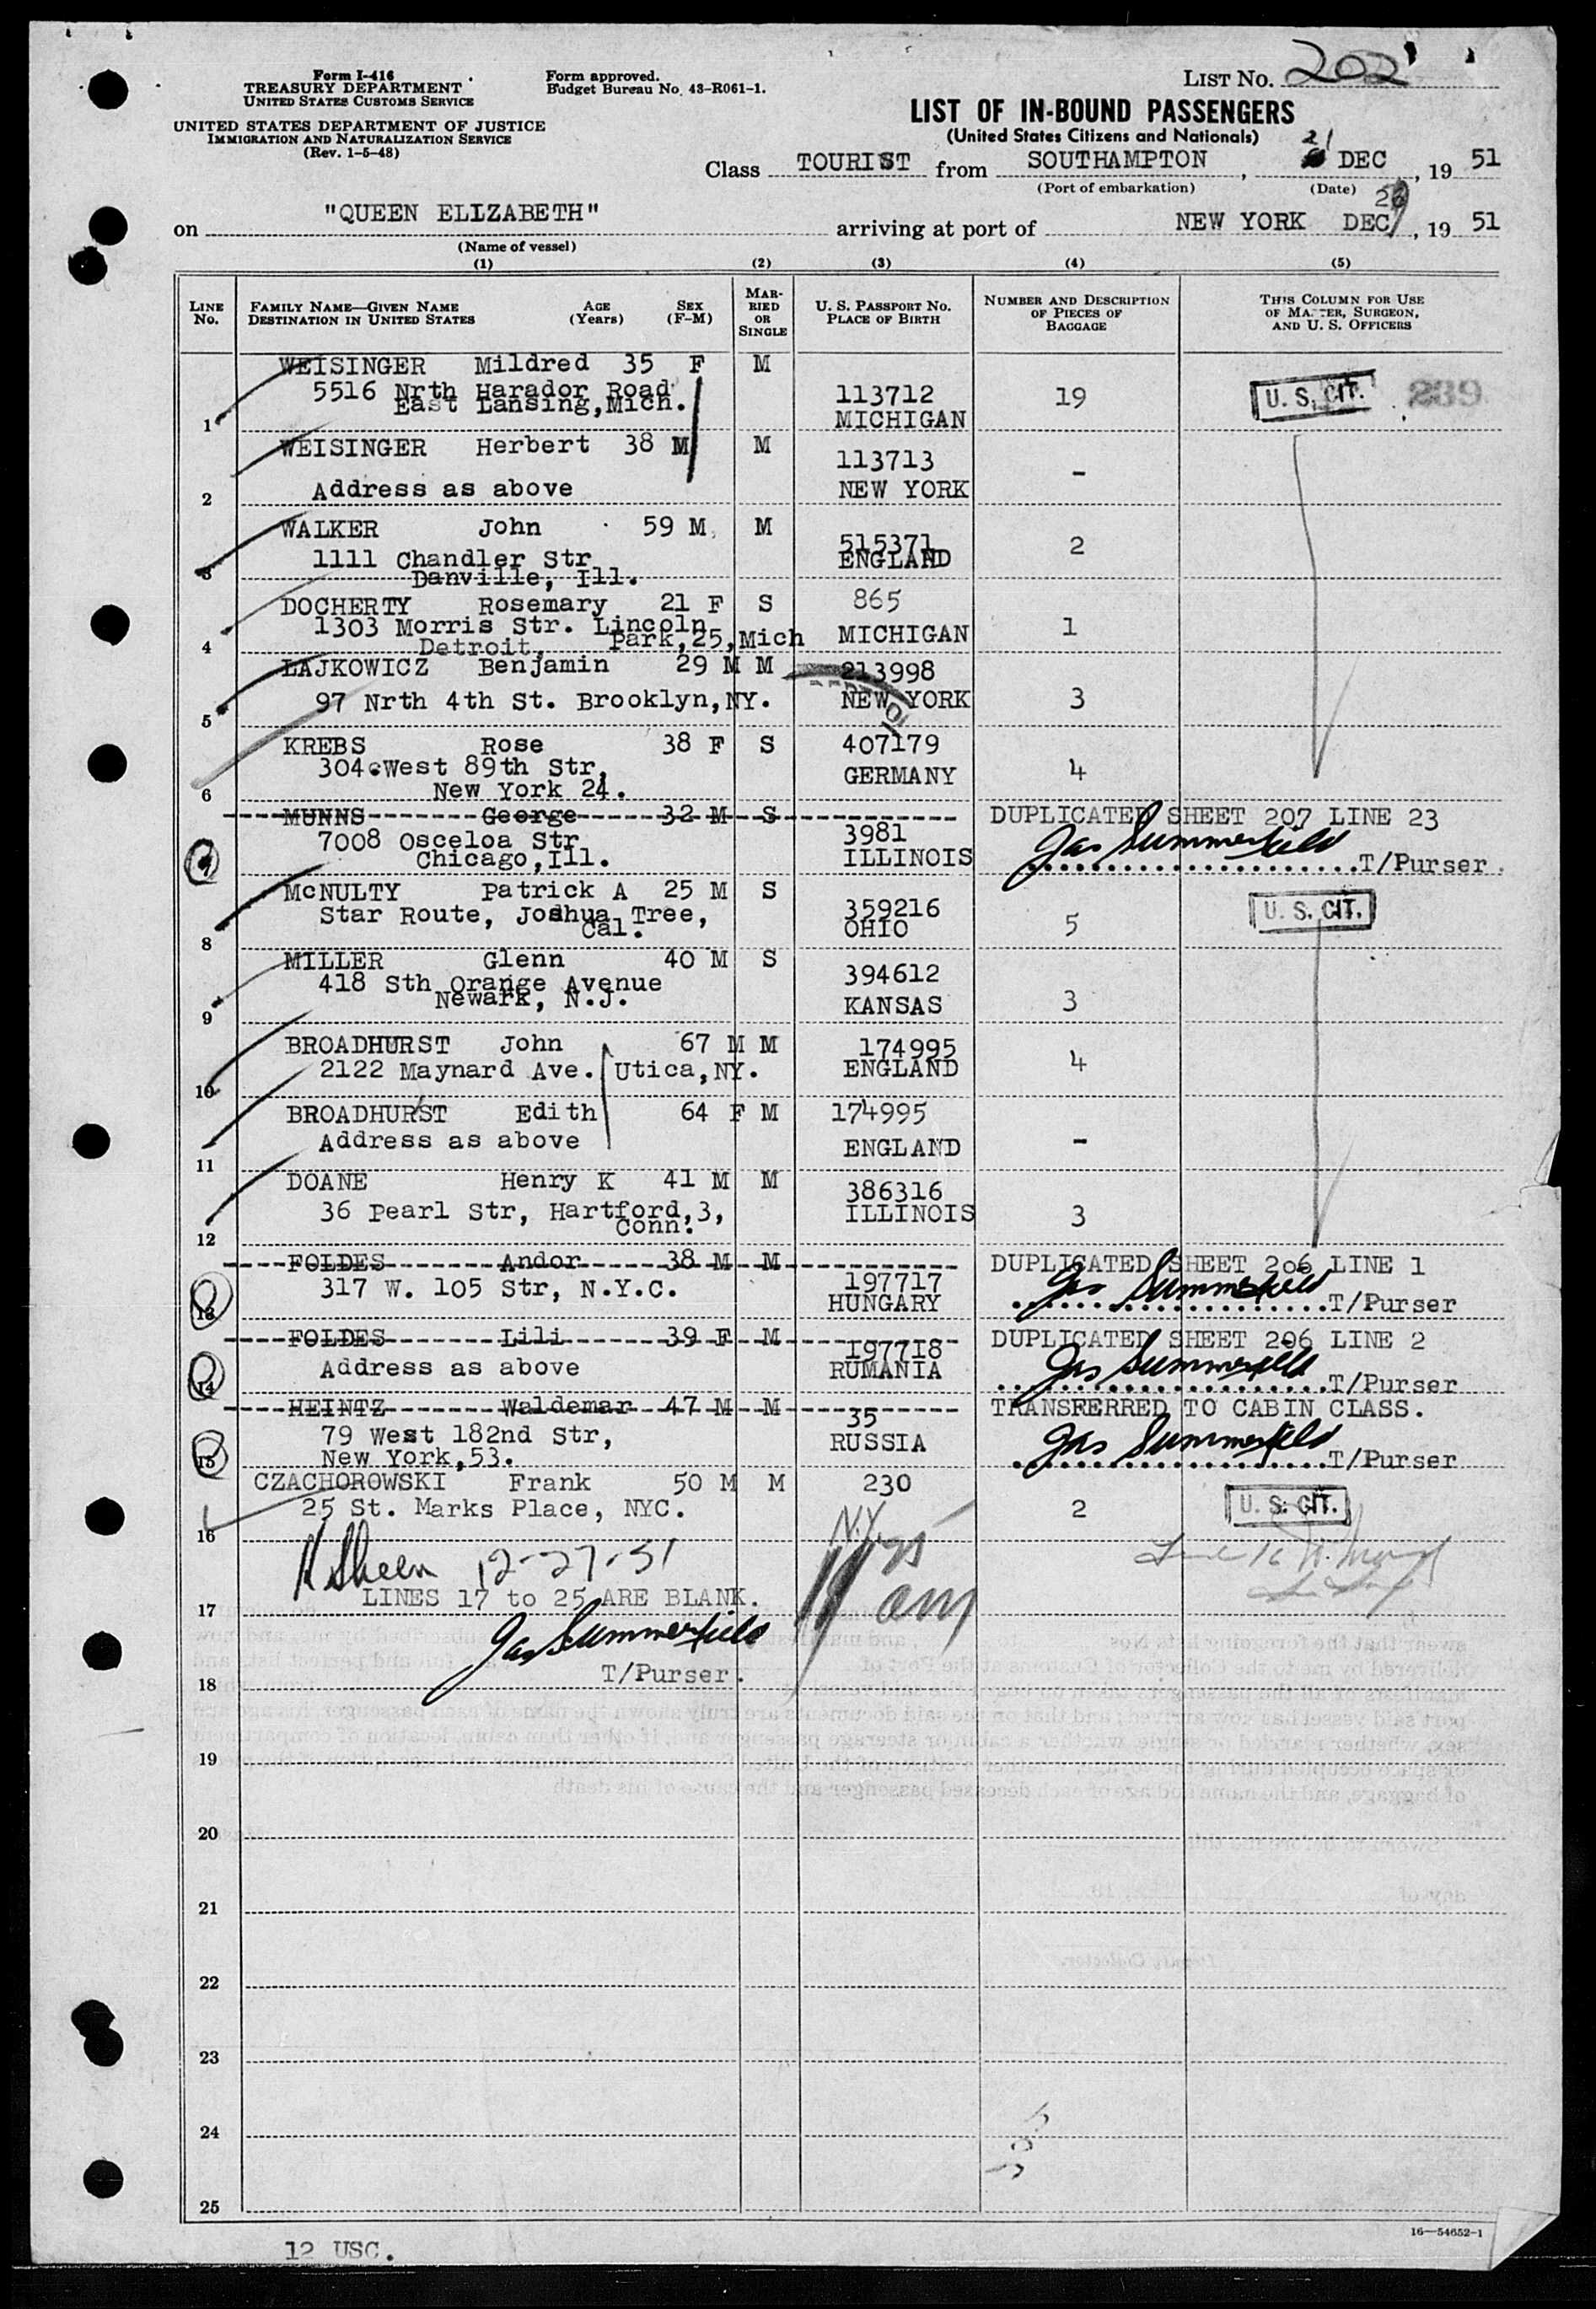 Form I-416
TREASURY DEPARTMENT
UNITED STATES CUSTOMS SERVICE
UNITED STATES DEPARTMENT OF JUSTICE
IMMIGRATION AND NATURALIZATION SERVICE
(Rev. 1-5-48)
Form approved.
Budget Bureau No. 43-R061-1.
LIST NO. 202
LIST OF IN-BOUND PASSENGERS
(United States Citizens and Nationals)
Class TOURIST from SOUTHAMPTON, 21 DEC, 19 51
(Port of embarkation) (Date)
on "QUEEN ELIZABETH" arriving at port of NEW YORK DEC, 19 51
(Name of vessel)
(1) (2) (3) (4) (5)
LINE No. FAMILY NAME—GIVEN NAME DESTINATION IN UNITED STATES AGE (Years) SEX (F-M) MARRIED OR SINGLE U. S. PASSPORT NO. PLACE OF BIRTH NUMBER AND DESCRIPTION OF PIECES OF BAGGAGE THIS COLUMN FOR USE OF MASTER, SURGEON, AND U. S. OFFICERS
WEISINGER Mildred 35 F M
5516 Nrth Harador Road 113712 19 U. S. CIT. 239
East Lansing, Mich.
1 MICHIGAN
WEISINGER Herbert 38 M M
113713 -
2 Address as above NEW YORK
WALKER John 59 M M
515371 2
1111 Chandler Str ENGLAND
3 Danville, Ill.
DOCHERTY Rosemary 21 F S 865
1303 Morris Str. Lincoln MICHIGAN 1
4 Detroit, Park,25,Mich
LAJKOWICZ Benjamin 29 M M 213998
97 Nrth 4th St. Brooklyn,NY. NEW YORK 3
5
KREBS Rose 38 F S 407179
304 West 89th Str, GERMANY 4
6 New York 24.
MUNNS George 32 M S DUPLICATED SHEET 207 LINE 23
7008 Osceloa Str 3981 Jas Summerfield
7 Chicago,Ill. ILLINOIS T/Purser.
McNULTY Patrick A 25 M S
Star Route, Joshua Tree, 359216 5 U. S. CIT.
8 Cal. OHIO
MILLER Glenn 40 M S
418 Sth Orange Avenue 394612
Newark, N.J.
9 KANSAS 3
BROADHURST John 67 M M 174995
10 2122 Maynard Ave. Utica,NY. ENGLAND 4
BROADHURST Edith 64 F M 174995
11 Address as above ENGLAND -
DOANE Henry K 41 M M 386316
36 Pearl Str, Hartford,3, ILLINOIS 3
12 Conn.
FOLDES Andor 38 M M DUPLICATED SHEET 206 LINE 1
317 W. 105 Str, N.Y.C. 197717 Jas Summerfield
13 HUNGARY T/Purser
FOLDES Lili 39 F M 197718 DUPLICATED SHEET 206 LINE 2
Address as above RUMANIA Jas Summerfield
14 T/Purser
HEINTZ Waldemar 47 M M 35 TRANSFERRED TO CABIN CLASS.
79 West 182nd Str, RUSSIA Jas Summerfield
15 New York,53. T/Purser
CZACHOROWSKI Frank 50 M M 230
25 St. Marks Place, NYC. 2 U. S. CIT.
16 N.Y.
H Sheen 12-27-51
LINES 17 to 25 ARE BLANK.
17
Jas Summerfield
T/Purser.
18
19
20
21
22
23
24
25
16—54652-1
12 USC.